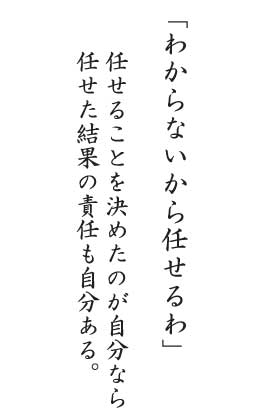 「わからないから任せるわ」
任せることを決めたのが自分なら
任せた結果の責任も自分ある。